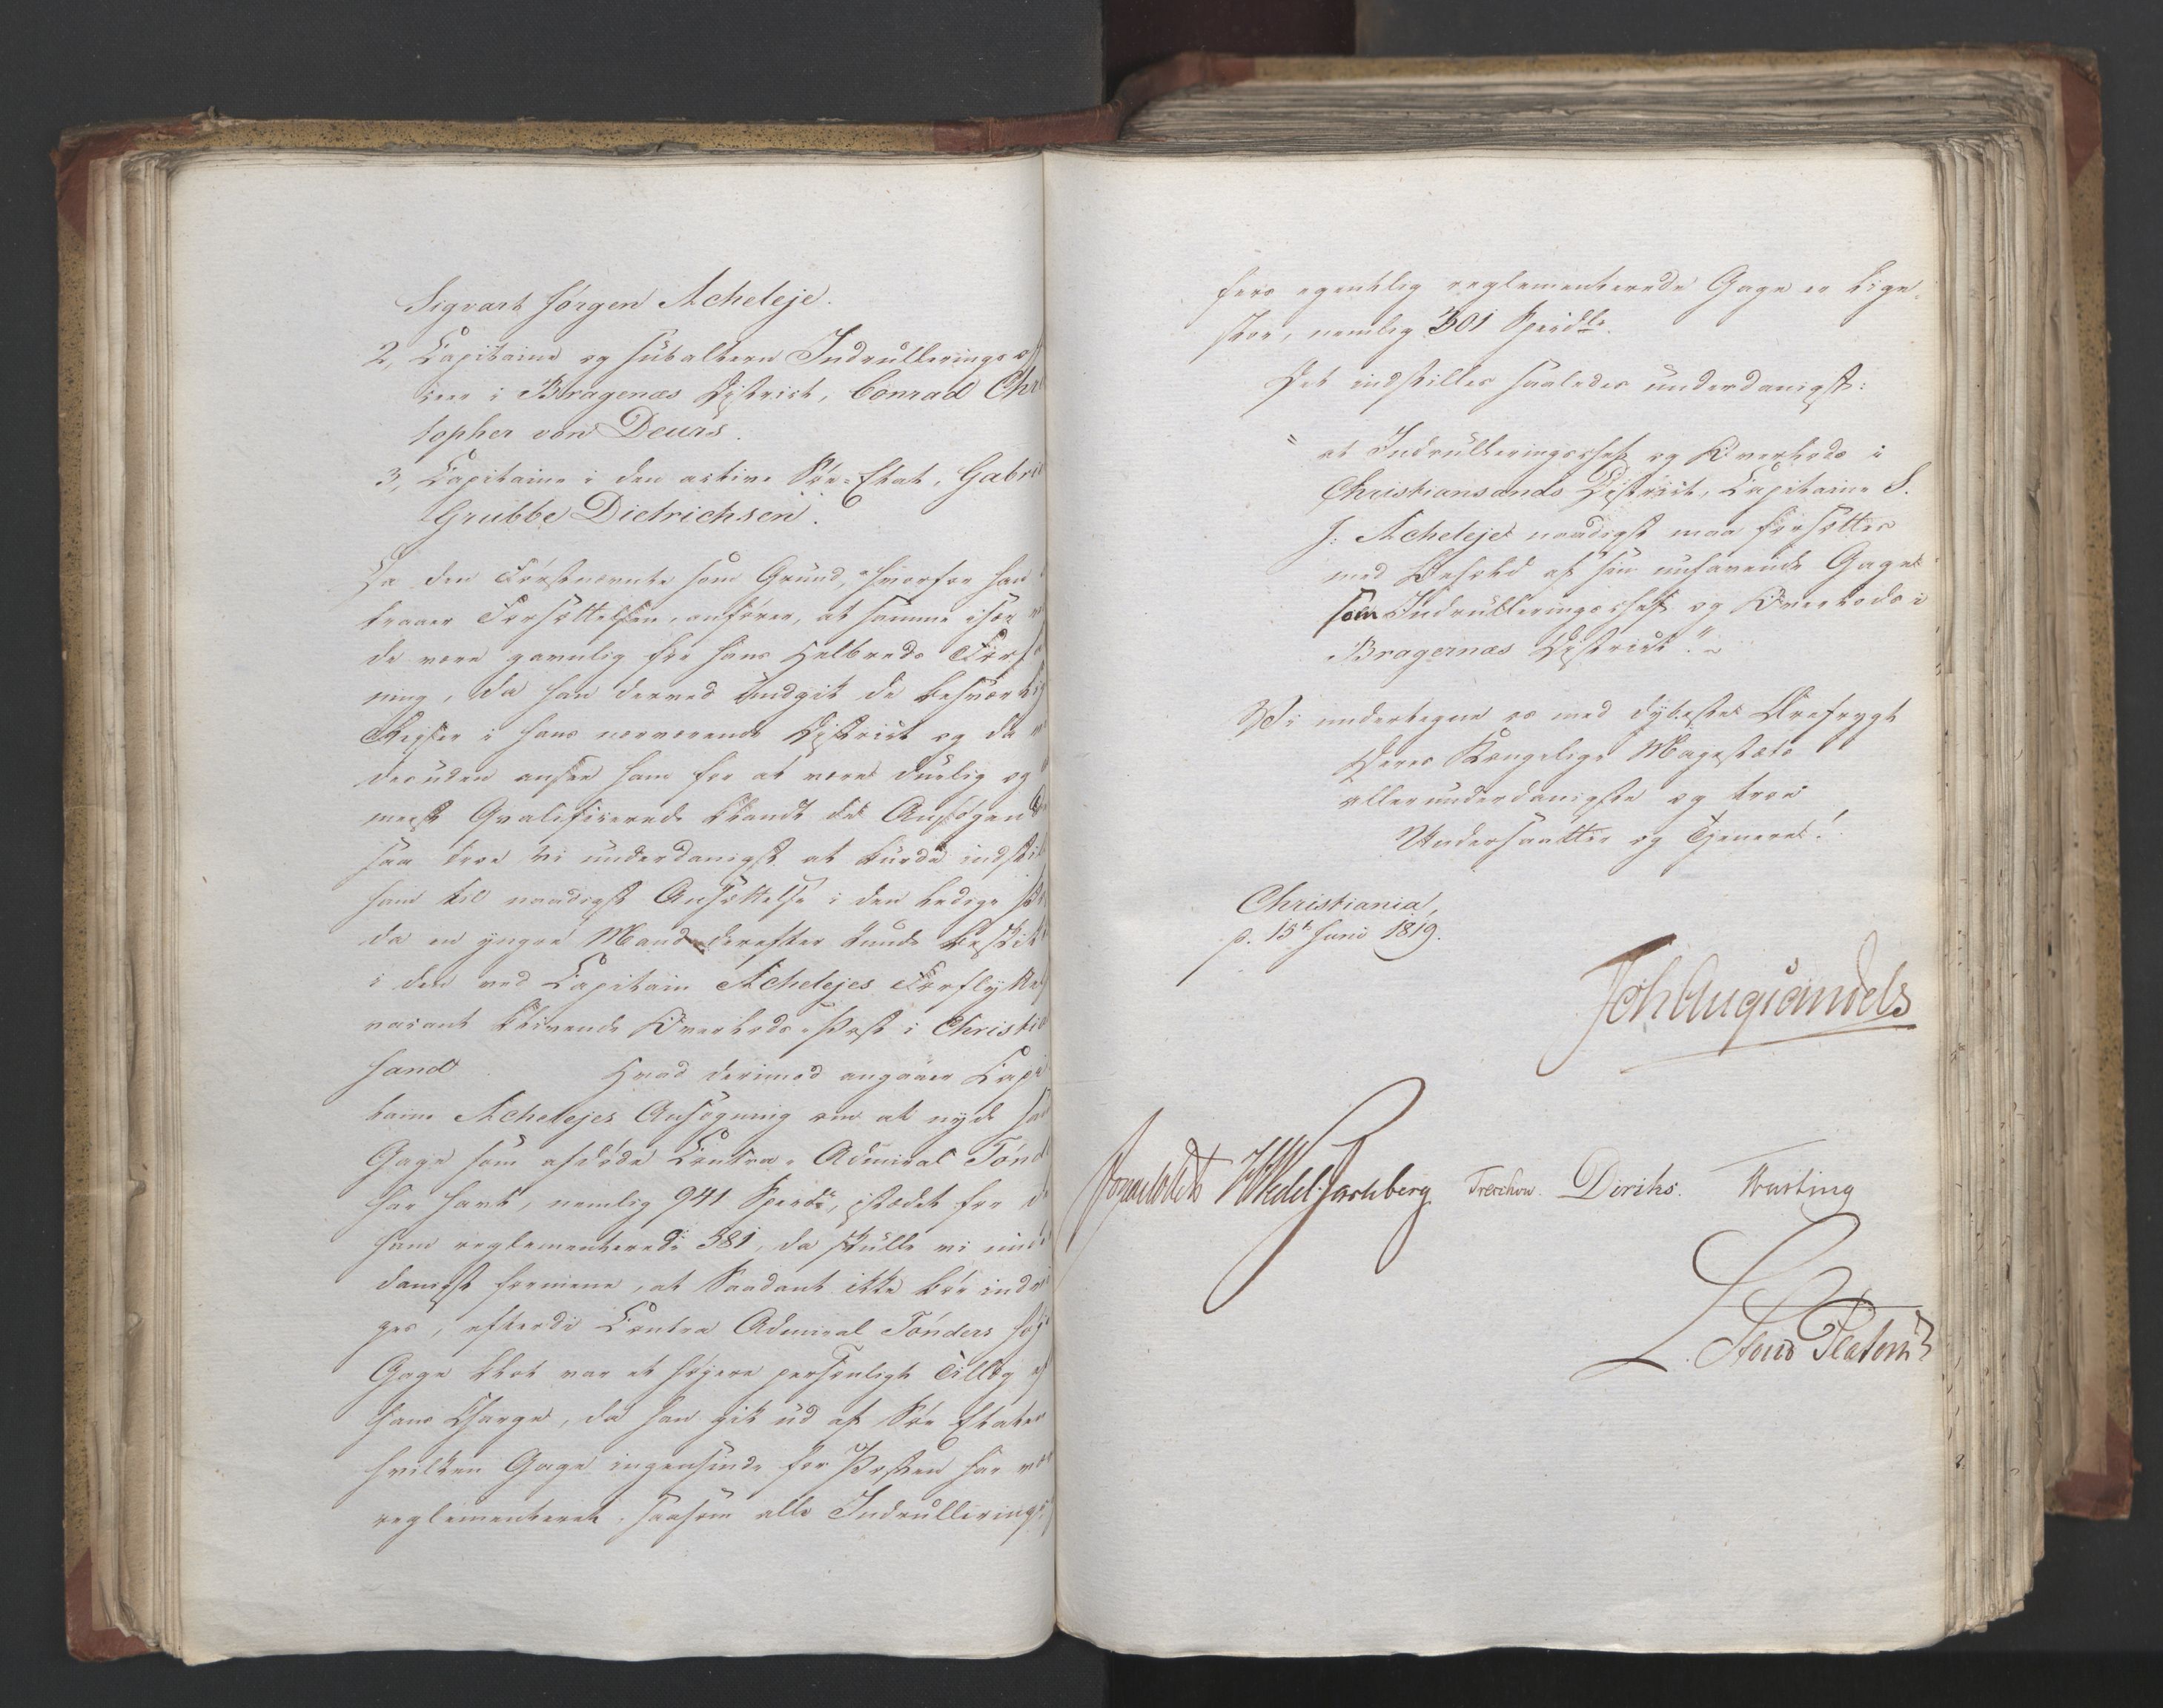 Sigvart Jørgen Acheleje.
2, Capitaine og subaltern Indrulleringsoff
ceer i Bragenæs District, Conrad Chri
topher von Deurs.
3, Capitaine i den active Søe-Etat, Gabri
Grubbe Dietrichsen.
Da den Førstnævnte som Grund, hvorfor han
traaer Forsættelsen, anfører, at samme især
de være gavnlig for hans Helbreds
ning, da han derved undgik de besværlig
Reiser i hans nærværende District og da
desuden ansee ham for at være duelig og
meest Qvalificerede blandt de Ansøgende
saa troe vi underdanigst at burde indstil
ham til naadigst Ansættelse i den ledige
da en yngre Mand derefter kunde beskik
i den ved Capitain Achelejes Forflyttel
vacant blivende Overlods-Post i Christia
sand. Hvad derimod angaaer Capi
taine Achelejes Ansøgning om at nyde
Gage som afdøde Contra-Admiral Tønd
har havt, nemlig 941 Spd, istædet for
ham reglementerede 581, da skulle vi und
danigst formene, at Saadant ikke bør
ges, efterdi Contra Admiral Tønders
Gage blot var et høiere personligt Tillæg
hans Charge, da han gik ud af Søe Etaten
hvilken Gage ingensinde for Posten har
reglementeret, saasom alle Indrullerings
fers egentlig reglementerede Gage er lige
stor, nemlig 501 Speid
Det indstilles saaledes underdanigst:
" at Indrulleringschef og Overlods i
Christiansands District, Capitaine S.
J. Acheleje naadigst maa forsættes
med Behold af sin nuhavende Gage
som Indrulleringschef og Overlods i
Bragernæs District."
Vi undertegne os med dybeste Ærefrygt
Deres Kongelige Majestæts
allerunderdanigste og troe
Undersaatter og Tjenere!
Christiania,
p. 15 Juni 1819.
Joh Aug Sandels
Wedel Jarlsberg Treschow. Diriks. Hasting